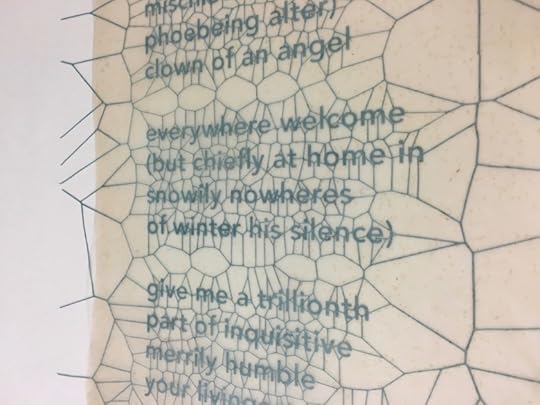 phoebeing alter)
clown of an angel
everywhere welcome
(but chiefly at home in
snowily nowheres
of winter his silence)
give me a trillionth
part of inquisitive
merrily humble
your